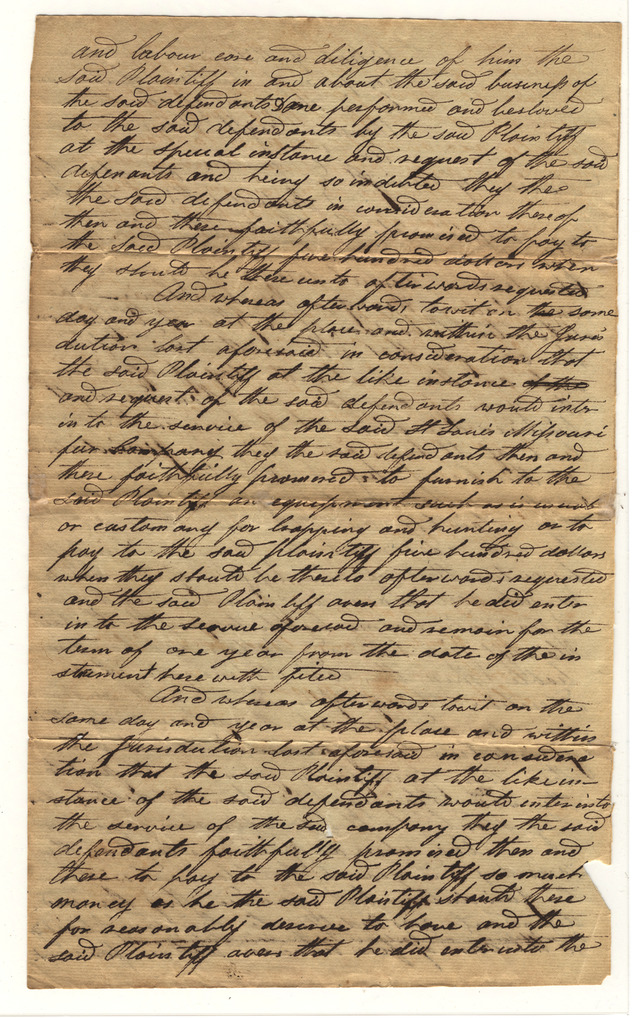 and labour care and diligence of him the
said Plaintiff in and about the said business of
the said defendants Done performed and bestowed
to the said defendants by the said Plaintiff
at the special instance and request of the said
defenants and being so indebted they the
the said defendants in consideration thereof
then and there faithfully promised to pay to
the said Plaintiff five hundred dollars when
they should be there unto afterwards requested
And whereas afterwards towit on the same
day and year at the place and within the Juris
dution last aforesaid in consideration that
the said Plaintiff at the like instance of the
and request of the said defendants would inter
in to the service of the said St Louis Missouri
fur Company they the said defendants then and
there faithfully promised to furnish to the
said Plaintiff an equipment such as is usual
or customary for trapping and hunting or to
pay to the said plaintiff five hundred dollars
when they should be thereto afterwards requested
and the said Plaintiff avers that he did enter
in to the service aforesaid and remain for the
term of one year from the date of the in
strument here with filed
And whereas afterwards towit on the
same day and year at the place and within
the Jurisdution last aforesaid in considera
tion that the said Plaintiff at the like in-
stance of the said defendants would inter into
the service of the said company they the said
defendants faithfully promised then and
there to pay to the said Plaintiff so much
money as he the said Plaintiff should there
for reasonably deserve to have and the
said Plaintiff avers that he did enter into the